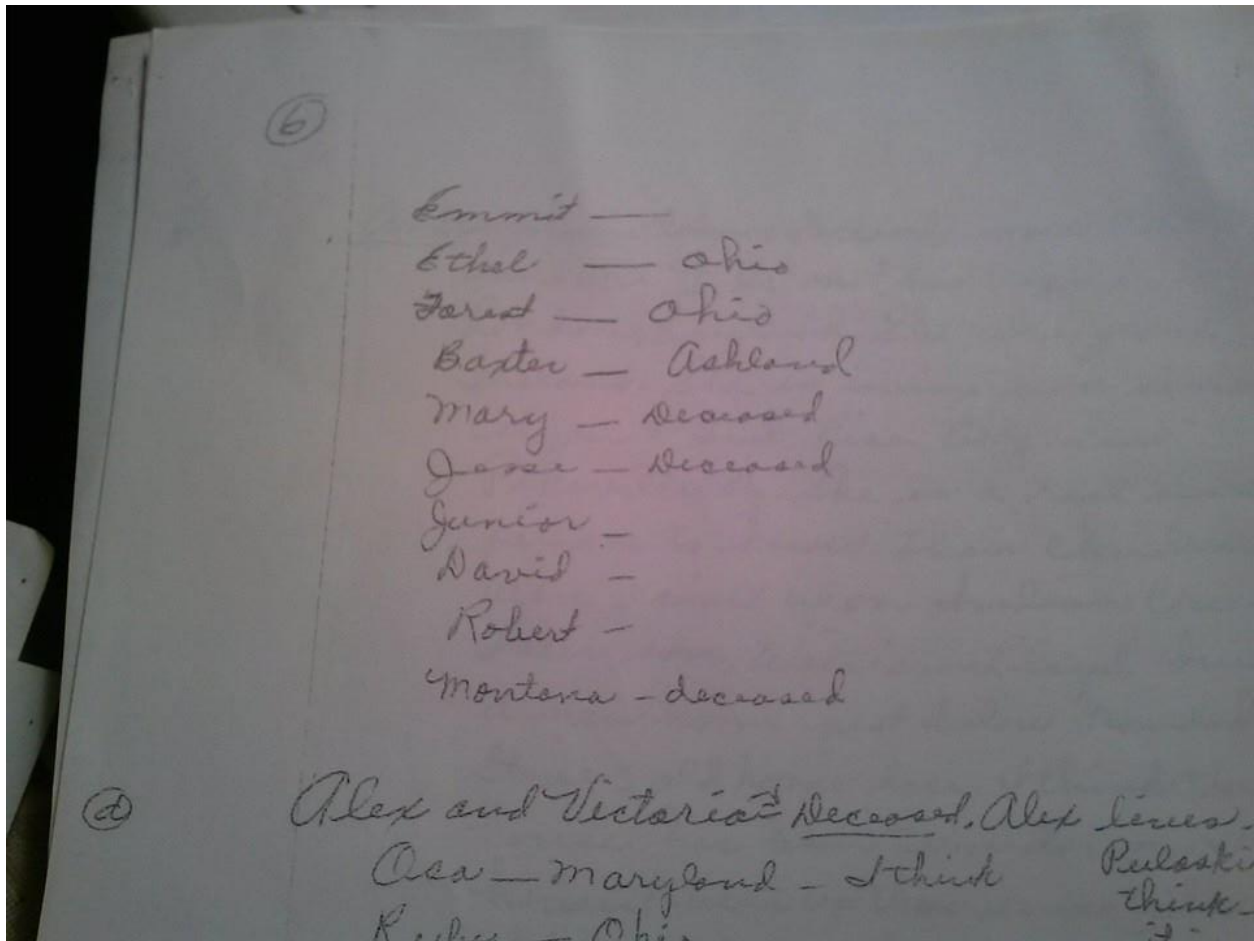 6
Emmit —
Ethel — Ohio
Forest — Ohio
Baxter — Ashland
Mary — Deceased
Jesse — Deceased
Junior —
David —
Robert —
Montana - deceased
d Alex and Victoria Deceased. Alex lives
Asa — Maryland - I think Pulaski
think
— Ohio